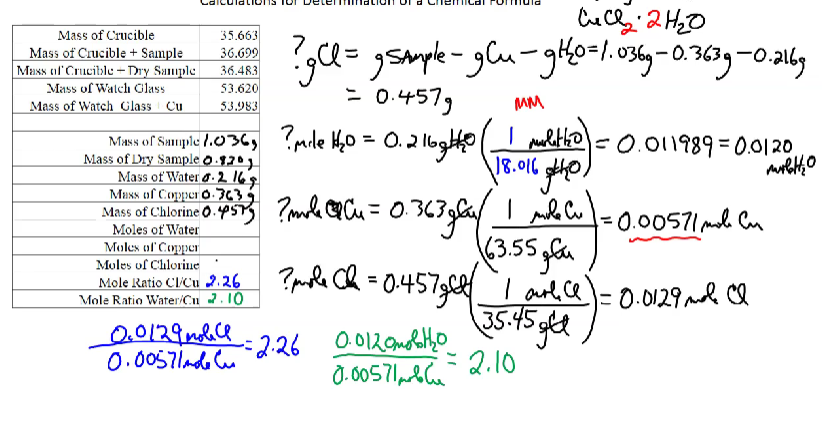 Calculations for Determination of a Chemical Formula
CuCl2·2H2O
Mass of Crucible 35.663
Mass of Crucible + Sample 36.699
Mass of Crucible + Dry Sample 36.483
Mass of Watch Glass 53.620
Mass of Watch Glass + Cu 53.983
?gCl = gSample - gCu - gH2O = 1.036g - 0.363g - 0.216g
= 0.457g
MM
Mass of Sample 1.036g
Mass of Dry Sample 0.820g
Mass of Water 0.216g
Mass of Copper 0.363g
Mass of Chlorine 0.457g
Moles of Water
Moles of Copper
Moles of Chlorine
Mole Ratio Cl/Cu 2.26
Mole Ratio Water/Cu 2.10
?mole H2O = 0.216gH2O (1 molH2O / 18.016 gH2O) = 0.011989 = 0.0120 molH2O
?mole Cu = 0.363gCu (1 mole Cu / 63.55 gCu) = 0.00571 mole Cu
?mole Cl = 0.457gCl (1 mole Cl / 35.45 gCl) = 0.0129 mole Cl
0.0129 mole Cl / 0.00571 mole Cu = 2.26
0.0120 mol H2O / 0.00571 mol Cu = 2.10